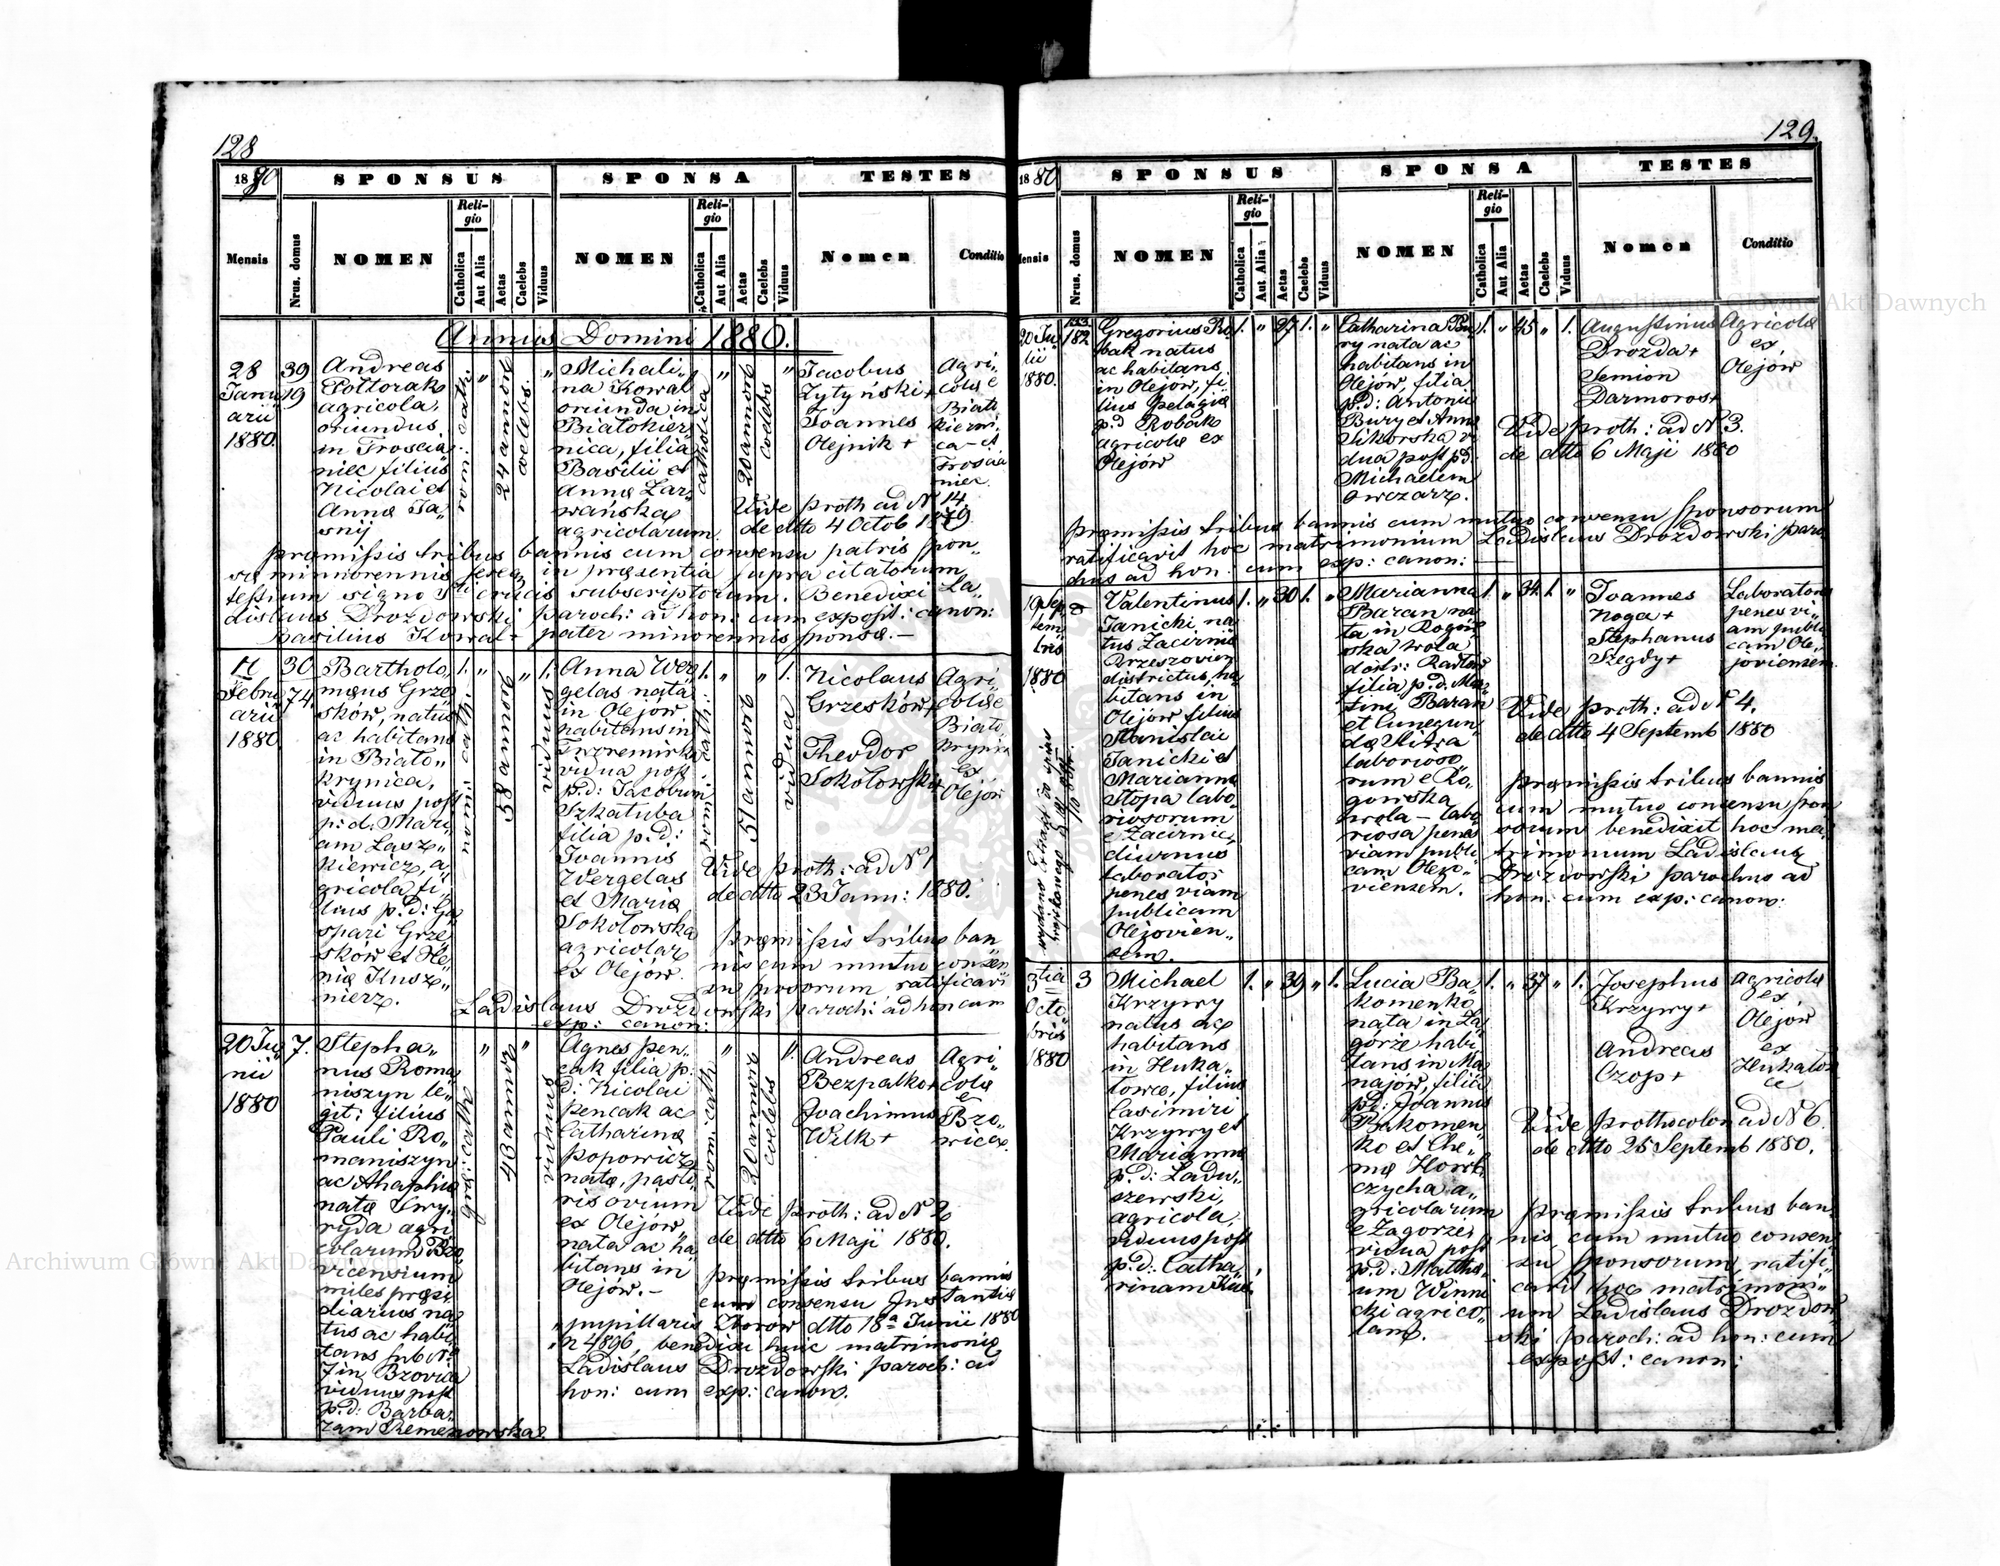 128
1880
SPONSUS
SPONSA
TESTES
Mensis
Nrus. domus
NOMEN
Religio
Catholica
Aut Alia
Aetas
Caelebs
Viduus
NOMEN
Religio
Catholica
Aut Alia
Aetas
Caelebs
Viduus
Nomen
Conditio
Annus Domini 1880.
28
Janu
arii
1880.
39
19
Andreas
Pottorak
agricola,
oriundus
in Troscia
niec filius
Nicolai et
Annæ Ja„
snij
rom: cath:
„
24 annor
coelebs.
„
Michali„
na Kowal
oriunda in
Białokier„
nica, filia
Basilii et
Annæ Zar„
wańska
agricolarum.
catholica
„
20 annor
coelebs
„
Jacobus
Zytyński+
Joannes
Olejnik +
Agri„
colæ e
Biało
kierni„
ca et
Troscia
niec.
Vide proth ad N 14
de dtto 4 Octob 1879
præmissis tribus bannis cum consensu patris spon„
sæ minorennis in præsentia supra citatorum
testium signo crucis subscriptorum. Benedixi La„
dislaus Drozdowski paroch: ad hon: cum exposit: canon:
Basilius Kowal + pater minorennis sponsæ. —
11
Febru
arii
1880.
30
74.
Bartholo„
mæus Grze„
sków, natus
ac habitans
in Biało„
krynica,
viduus post
p: d: Mari„
am Lasz„
kiewicz, a„
gricola fi„
lius p: d: Ga„
spari Grze„
sków et He„
niæ Kusz„
nierz.
1.
„
58 annor
„
1.
viduus
Anna Wer„
gelas nata
in Olejów
habitans in
vidua post
p: d: Jacobum
Szkatuba
filia p: d:
Joannis
Wergelas
et Mariæ
Sokolowska
agricolar
ex Olejów.
1.
„
51 annor
„
1.
vidua
Nicolaus
Grzesków+
Theodor
Sokolowski+
Agri
colæ
Biało„
krynica
Ex
Olejów
Vide proth: ad N 1
de dtto 23 Janu: 1880.
præmissis tribus ban„
nis cum mutuo consen„
su sponsorum, ratificavi
Ladislaus Drozdowski paroch: ad hon cum
exp: canon:
20 Ju„
nii
1880
7.
Stepha„
nus Roma
niszyn le„
git: filius
Pauli Ro„
maniszyn
ac Ahaphiæ
natæ Swy„
ryda agri„
colarum Bzo„
vicensium
miles præsi„
diarius na„
tus ac habi„
tans sub N
7 in Bzovica
viduus post
p: d: Barba„
ram Remenowska.
„
43 annor
„
viduus
Agnes Pen„
cak filia p:
d: Nicolai
Pencak ac
Catharinæ
Popowicz
natæ, pasto„
ris ovium
ex Olejów,
nata ac ha„
bitans in
Olejów. —
rom: cath:
„
20 annor
coelebs
„
Andreas
Bezpalko+
Joachimus
Wilk+
Agri„
colæ
e
Bzo„
wica.
Vide proth: ad N 2
de dtto 6 Maji 1880.
præmissis tribus bannis
cum consensu Instantiæ
pupillaris Zborow dtto 18a Junii 1880
N 4896, benedixi huic matrimonio
Ladislaus Drozdowski paroch: ad
hon: cum exp: canon.
129.
1880
SPONSUS
SPONSA
TESTES
Mensis
Nrus. domus
NOMEN
Religio
Catholica
Aut Alia
Aetas
Caelebs
Viduus
NOMEN
Religio
Catholica
Aut Alia
Aetas
Caelebs
Viduus
Nomen
Conditio
20 Ju„
lii
1880.
133
182
Gregorius Ro„
bak natus
ac habitans
in Olejów, fi„
lius Pelagiæ
p: d: Robak
agricolæ ex
Olejów
1.
„
27
1.
„
Catharina Bu„
ry nata ac
habitans in
Olejów, filia
p: d: Antonii
Bury et Annæ
Sikorska vi„
dua post p: d:
Michaelem
Owczarz.
1.
„
45
„
1.
Augustinus
Drozda+
Semion
Darmoros+
Agricolæ
ex
Olejów
Vide proth: ad N 3.
de dtto 6 Maji 1880
Præmissis tribus bannis cum mutuo consensu sponsorum
ratificavit hoc matrimonium Ladislaus Drozdowski paro„
chus ad hon: cum exp: canon: —
19 Sep„
tem„
bris
1880
Valentinus
Janicki na„
tus Zacirnie
Brzeszovien
districtus, ha„
bitans in
Olejów filius
Stanislai
Janicki et
Mariannæ
Stopa labo„
riosorum
e Zacirnie,
diurnus
laborator
penes viam
publicam
Olejovien„
sem.
1.
„
30
1.
„
Marianna
Baran na„
ta in Rogow„
ska wola
distr: Radlów
filia p: d: Mar„
tini Baran
et Cunegun„
dæ Sitra
laborioso„
rum e Ro„
gowska
wola — labo„
riosa penes
viam publi„
cam Olejo„
viensem.
1.
„
34
1.
„
Joannes
Noga+
Stephanus
Szegdy+
Laboratores
penes vi„
am publi„
cam Ole„
joviensem
Vide proth: ad N 4.
de dtto 4 Septemb 1880
præmissis tribus bannis
cum mutuo consensu spon„
sorum benedixit hoc ma„
trimonium Ladislaus
Drozdowski parochus ad
hon: cum exp: canon:
3tia
Octo
bris
1880
3
Michael
Krzywy
natus ac
habitans
in Huka„
lowce, filius
Casimiri
Krzywy et
Mariannæ
p: d: Ladu„
szewski,
agricola,
viduus post
p: d: Catha„
rinam
1.
„
39
„
1.
Lucia Ba„
komenko
nata in Za„
górze habi„
tans in Ma„
najów, filia
p: d: Joannis
Bakomen„
ko et Che„
mæ Howh
czycha a„
gricolarum
e Zagorze,
vidua post
p: d: Matthæ„
um Winni„
cki agrico„
lam.
1.
„
37
„
1.
Josephus
Krzywy+
Andreas
Czop+
Agricolæ
ex
Olejów
ex
Hukalow
ce
Vide prothocolon ad N 6.
de dtto 25 Septemb 1880.
Præmissis tribus ban„
nis cum mutuo consen„
su sponsorum, ratifi„
cavit hoc matrimoni„
um Ladislaus Drozdow„
ski paroch: ad hon: cum
exposit: canon:
Archiwum Główne Akt Dawnych
Archiwum Główne Akt Dawnych